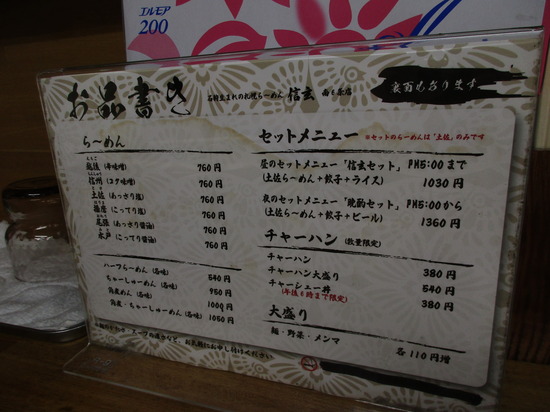 エルモア
200
お品書き
石狩生まれの札幌らーめん 信玄 南6条店
裏面もあります
らーめん
越後 (辛味噌) 760円
信州 (コク味噌) 760円
土佐 (あっさり塩) 760円
播磨 (こってり塩) 760円
尾張 (あっさり醤油) 760円
水戸 (こってり醤油) 760円
ハーフらーめん (各味) 540円
ちゃーしゅーめん (各味) 950円
角煮めん (各味) 1000円
角煮・ちゃーしゅーめん (各味) 1050円
セットメニュー ※セットのらーめんは「土佐」のみです
昼のセットメニュー「信玄セット」PM5:00まで
(土佐らーめん+餃子+ライス) 1030円
夜のセットメニュー「晩酌セット」PM5:00から
(土佐らーめん+餃子+ビール) 1360円
チャーハン (数量限定)
チャーハン 380円
チャーハン大盛り 540円
チャーシュー丼 380円
(午後6時まで限定)
大盛り
麺・野菜・メンマ 各110円増
スープの濃さなど、お気軽にお申し付けください